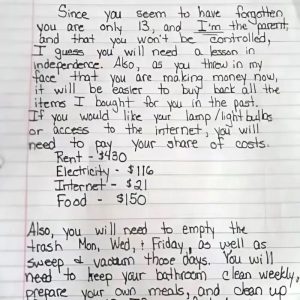 Since you seem to have forgotten
you are only 13, and I'm the parent,
and that you won't be controlled,
I guess you will need a lesson in
independence. Also, as you threw in my
face that you are making money now,
it will be easier to buy back all the
items I bought for you in the past.
If you would like your lamp/lightbulbs
or access to the internet, you will
need to pay your share of costs.
Rent - $430
Electricity - $116
Internet - $21
Food - $150
Also, you will need to empty the
trash Mon, Wed, & Friday, as well as
sweep & vacuum those days. You will
need to keep your bathroom clean weekly,
prepare your own meals, and clean up